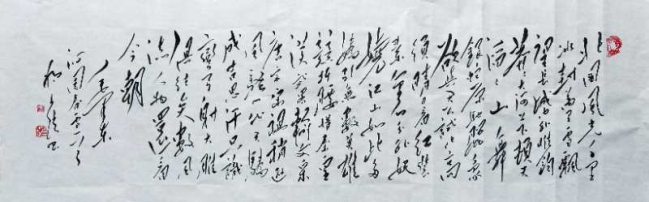 北国风光千里
冰封万里雪飘
望长城内外惟余
莽莽大河上下顿失
滔滔山舞
银蛇原驰蜡象
欲与天公试比高
须晴日看红装
素裹分外妖
娆江山如此多
娇引无数英雄
竞折腰惜秦皇
汉武略输文采
唐宗宋祖稍逊
风骚一代天骄
成吉思汗只识
弯弓射大雕
俱往矣数风
流人物还看
今朝
毛泽东
沁园春雪